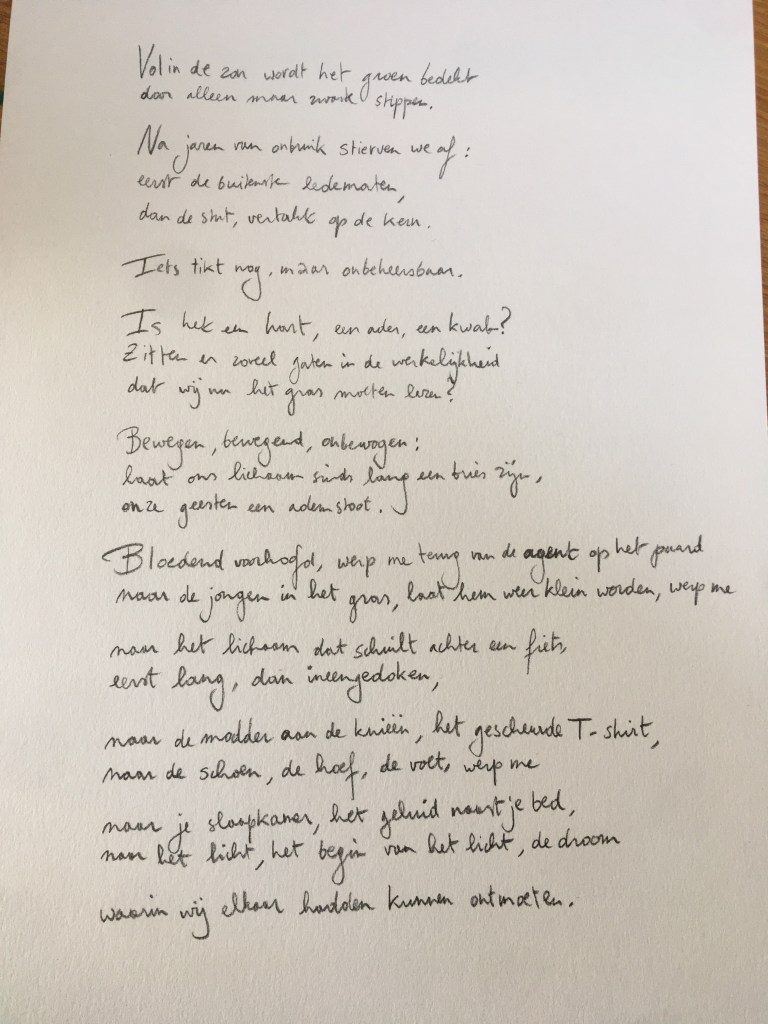 Vol in de zon wordt het groen bedekt
door alleen maar zwarte stippen.
Na jaren van onbruik stierven we af:
eerst de buitenste ledematen,
dan de stut, vertakt op de kern.
Iets tikt nog, maar onbeheersbaar.
Is het een hart, een ader, een kwab?
Zitten er zoveel gaten in de werkelijkheid
dat wij nu het gras moeten lezen?
Bewegen, bewegend, onbewogen:
laat ons lichaam sinds lang een bries zijn,
onze geesten een ademstoot.
Bloedend voorhoofd, werp me terug van de agent op het paard
naar de jongen in het gras, laat hem weer klein worden, werp me
naar het lichaam dat schuilt achter een fiets,
eerst lang, dan ineengedoken,
naar de modder aan de knieën, het gescheurde T-shirt,
naar de schoen, de hoef, de voet, werp me
naar je slaapkamer, het geluid naast je bed,
naar het licht, het begin van het licht, de droom
waarin wij elkaar hadden kunnen ontmoeten.